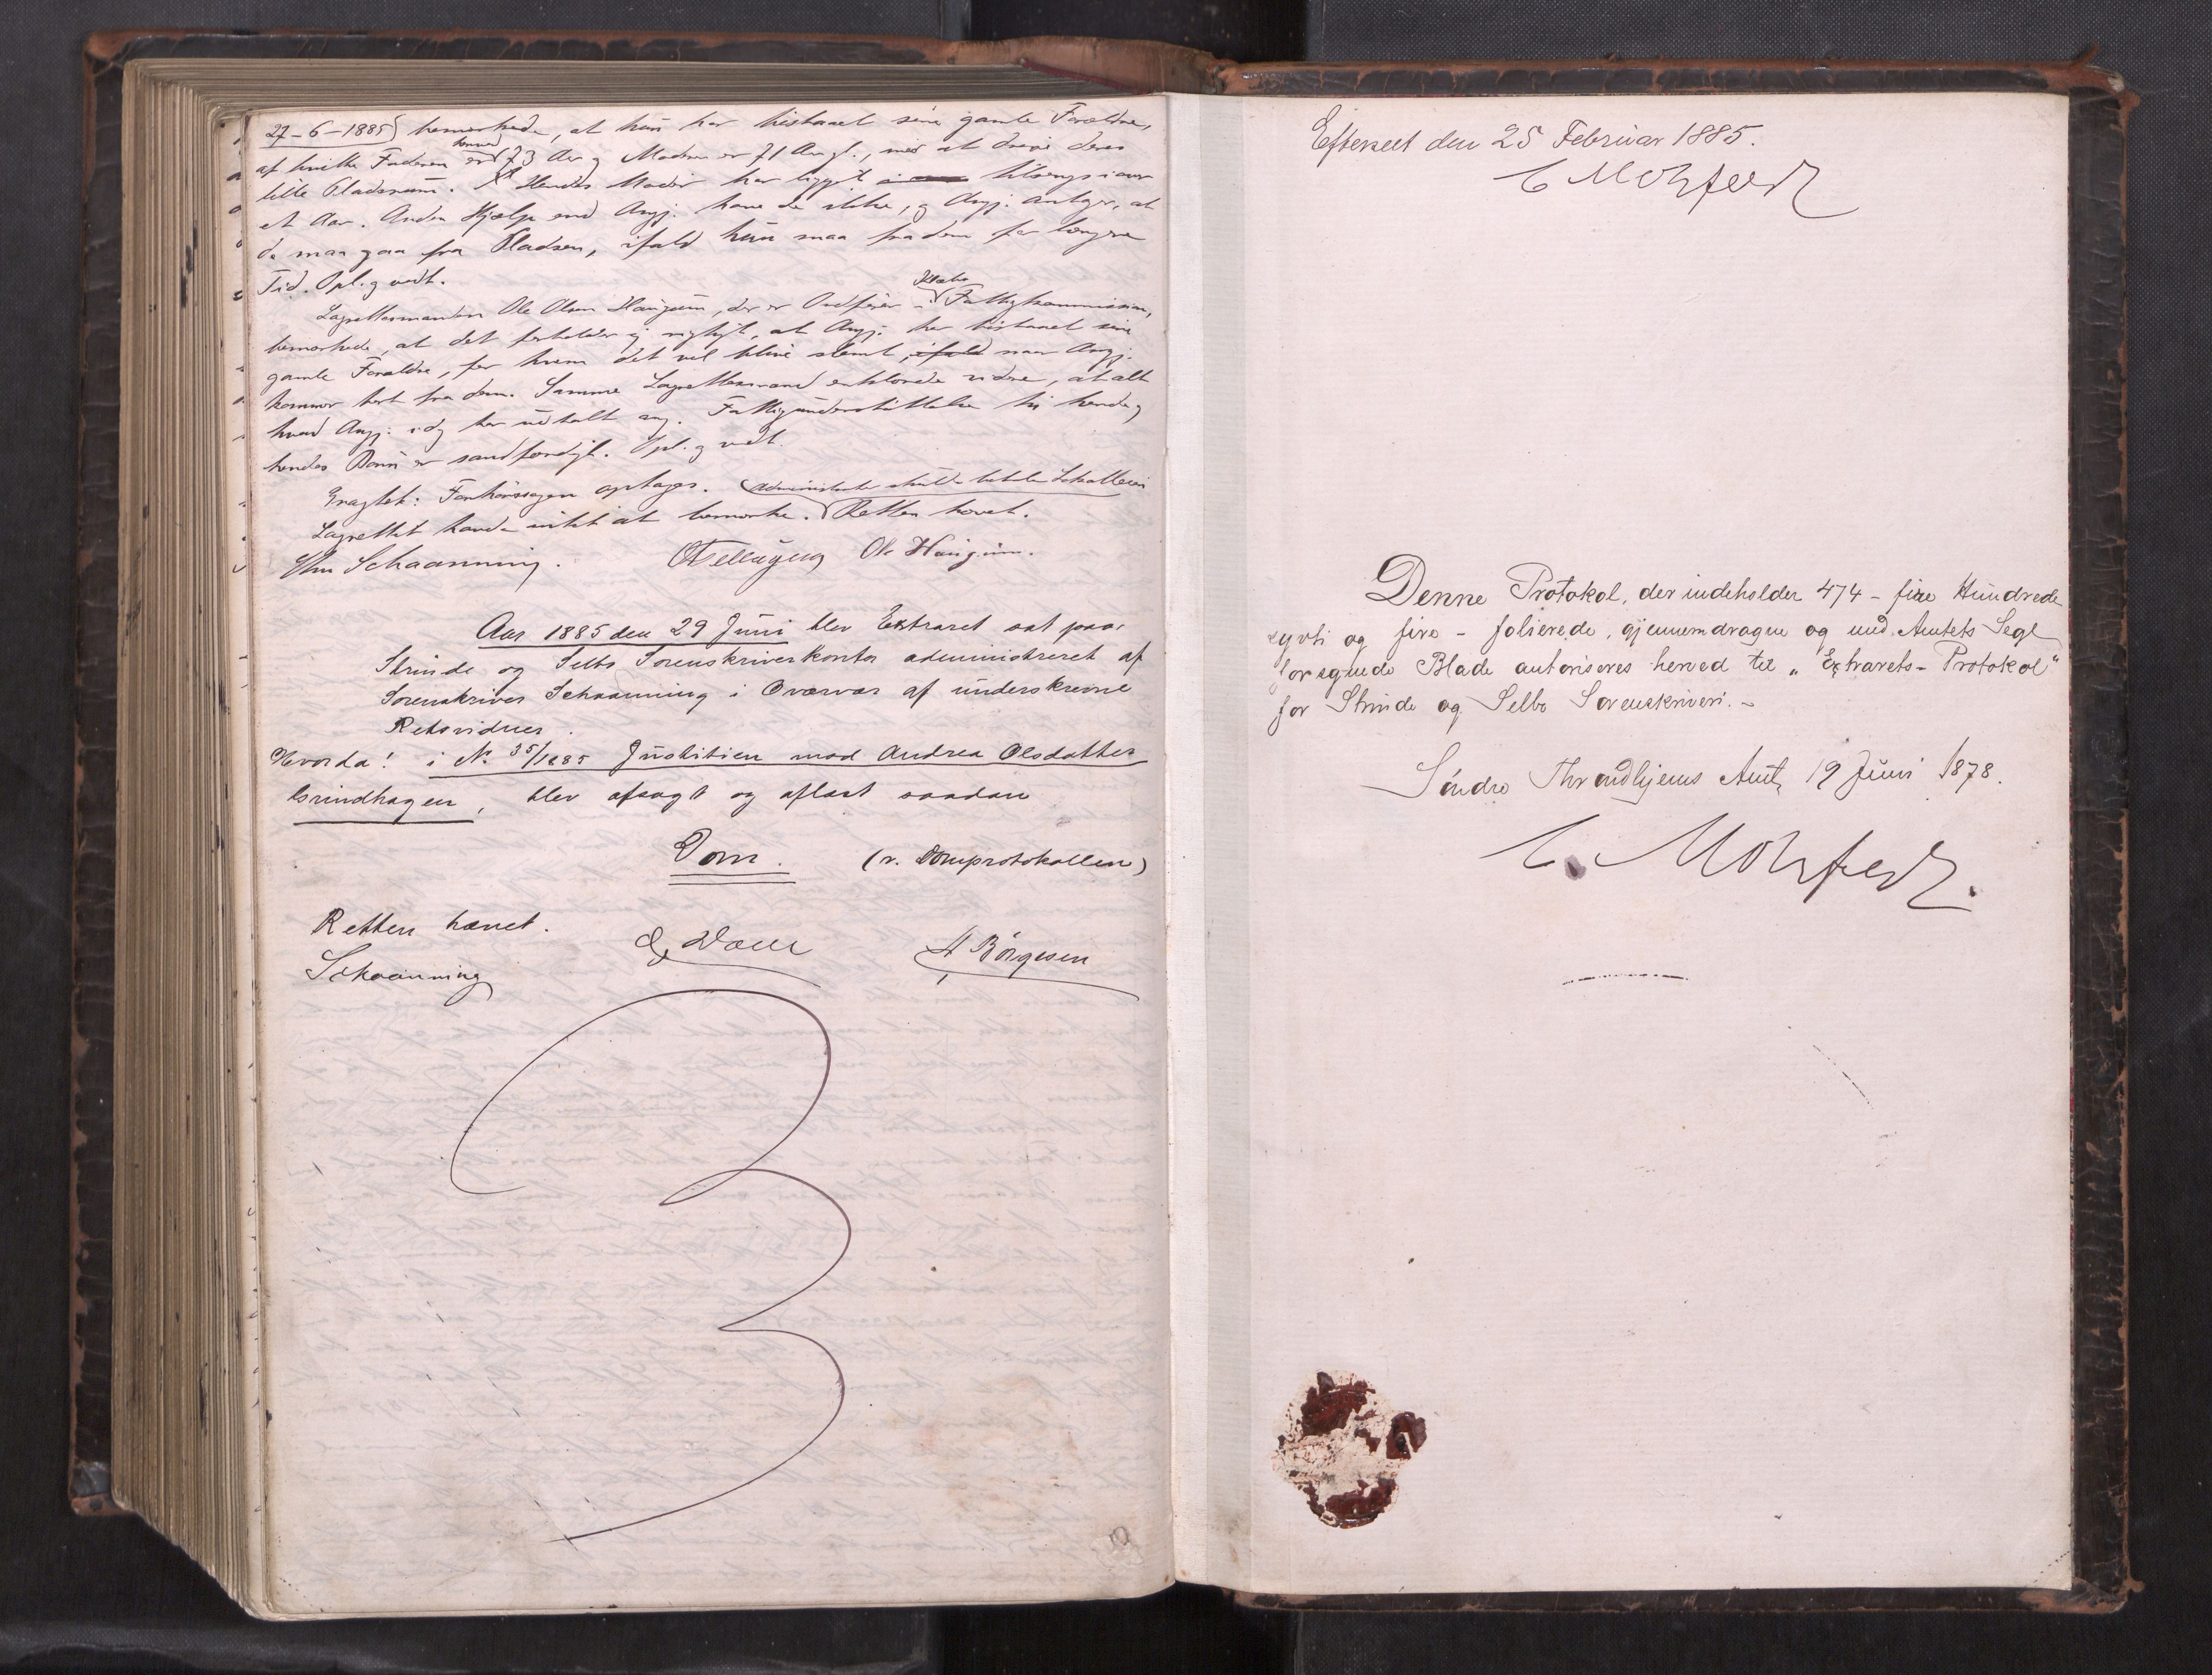 27-6-1885) bemærkede, at hun har bistaaet sine gamle Forældre,
af hvilke Faderen er 73 Aar og Moderen er 71 Aar gl., med at drive deres
lille Pladsrum. Hendes Moder har ligget tilsengs i over
et Aar. Anden Hjælp end Ang. have de ikke, og Ang. antager, at
de maa gaa fra Pladsen, ifald hun maa fra dem for længere
Tid. Opl. og vedt.
Lagrettesmanden Ole Olsen Haugum, der er Ordfører i Klæbu Fattigkommission,
bemærkede, at det forholder sig rigtigt, at Ang. har bistaaet sine
gamle Forældre, for hvem det vil blive slemt, ifald naar Ang.
kommer bort fra dem. Samme Lagrettesmand erklærede videre, at alt
hvad Ang. idag har udtalt ang. Fattigunderstøttelse til hende og
hendes Børn er sandfærdigt. Opl. og vedt.
Eragtet: Forhørssagen optages.
Lagrettet havde intet at bemærke. Retten hævet.
Schaanning. Ole Haugum.
Aar 1885 den 29 Juni blev Extraret sat paa
Strinde og Selbo Sorenskriverkontor administreret af
Sorenskriver Schaanning i Overvær af underskrevne
Retsvidner.
Hvorda! i No. 35/1885 Justitien mod Andrea Olsdatter
Grindhagen, blev afsagt og aflæst saadan
Dom. (v. Domprotokollen)
Retten hævet.
Schaanning A Börgesen
Efterseet den 25 Februar 1885.
Denne Protokol, der indeholder 474 - fire Hundrede
syvti og fire - folierede, gjennemdragne og med Amtets Segl
forsynede Blade autoriseres herved til „Extrarets-Protokol“
for Strinde og Selbo Sorenskriveri.-
Söndre Throndhjems Amt, 19 Juni 1878.